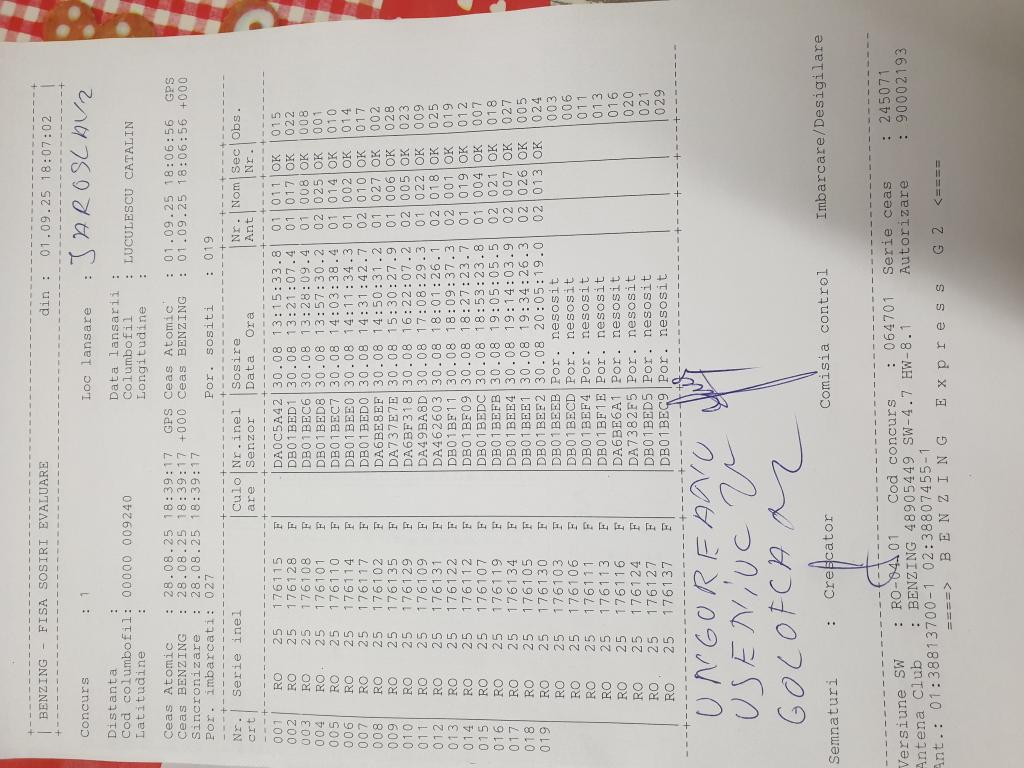 BENZING - FISA SOSIRI EVALUARE din : 01.09.25 18:07:02
Concurs : 1 Loc lansare : JAROSLAV2
Distanta : Data lansarii :
Cod columbofil: 00000 009240 Columbofil : LUCULESCU CATALIN
Latitudine : Longitudine :
Ceas Atomic : 28.08.25 18:39:17 GPS Ceas Atomic : 01.09.25 18:06:56 GPS
Ceas BENZING : 28.08.25 18:39:17 +000 Ceas BENZING : 01.09.25 18:06:56 +000
Sincronizare : 28.08.25 18:39:17
Por. imbarcati: 027 Por. sositi : 019
Nr. | Serie inel |Culo|Nr.inel |Sosire |Nr. |Nom|Sec|Obs.
crt| |are |Senzor |Data Ora |Ant | |Nr.|
001 RO 25 176115 F DA0C5A42 30.08 13:15:33.8 01 011 OK 015
002 RO 25 176128 F DB01BED1 30.08 13:21:07.4 01 017 OK 022
003 RO 25 176108 F DB01BEC6 30.08 13:28:09.4 01 008 OK 008
004 RO 25 176101 F DB01BED8 30.08 13:57:30.2 02 025 OK 001
005 RO 25 176110 F DB01BEC7 30.08 14:03:38.4 01 014 OK 010
006 RO 25 176114 F DB01BEED 30.08 14:11:34.3 01 002 OK 014
007 RO 25 176117 F DB01BED0 30.08 14:31:42.7 02 010 OK 017
008 RO 25 176102 F DA6BE8EF 30.08 14:50:31.2 01 027 OK 002
009 RO 25 176135 F DA737E7E 30.08 15:30:27.9 01 006 OK 028
010 RO 25 176129 F DA6BF318 30.08 16:22:07.2 02 005 OK 023
011 RO 25 176109 F DA49BA8D 30.08 17:08:29.3 01 022 OK 009
012 RO 25 176131 F DA462603 30.08 18:01:26.1 02 018 OK 025
013 RO 25 176122 F DB01BF11 30.08 18:09:37.3 02 001 OK 019
014 RO 25 176112 F DB01BF09 30.08 18:27:23.7 01 019 OK 012
015 RO 25 176107 F DB01BEDC 30.08 18:53:23.8 01 004 OK 007
016 RO 25 176119 F DB01BEFB 30.08 19:05:05.5 02 021 OK 018
017 RO 25 176134 F DB01BEE4 30.08 19:14:03.9 02 007 OK 027
018 RO 25 176105 F DB01BEE1 30.08 19:34:26.3 02 026 OK 005
019 RO 25 176130 F DB01BEF2 30.08 20:05:19.0 02 013 OK 024
RO 25 176103 F DB01BEEB Por. nesosit 003
RO 25 176106 F DB01BECD Por. nesosit 006
RO 25 176111 F DB01BEF4 Por. nesosit 011
RO 25 176113 F DB01BF1E Por. nesosit 013
RO 25 176116 F DA6BE6A1 Por. nesosit 016
RO 25 176124 F DA7382F5 Por. nesosit 020
RO 25 176127 F DB01BED5 Por. nesosit 021
RO 25 176137 F DB01BEC9 Por. nesosit 029
UNGUREANU
USENIUC
GOLOFCA
Semnaturi : Crescator Comisia control Imbarcare/Desigilare
Versiune SW : RO-04.01 Cod concurs : 064701 Serie ceas : 245071
Antena Club : BENZING 48905449 SW-4.7 HW-8.1 Autorizare : 90002193
Ant.: 01:38813700-1 02:38807455-1
====> B E N Z I N G E x p r e s s G 2 <====